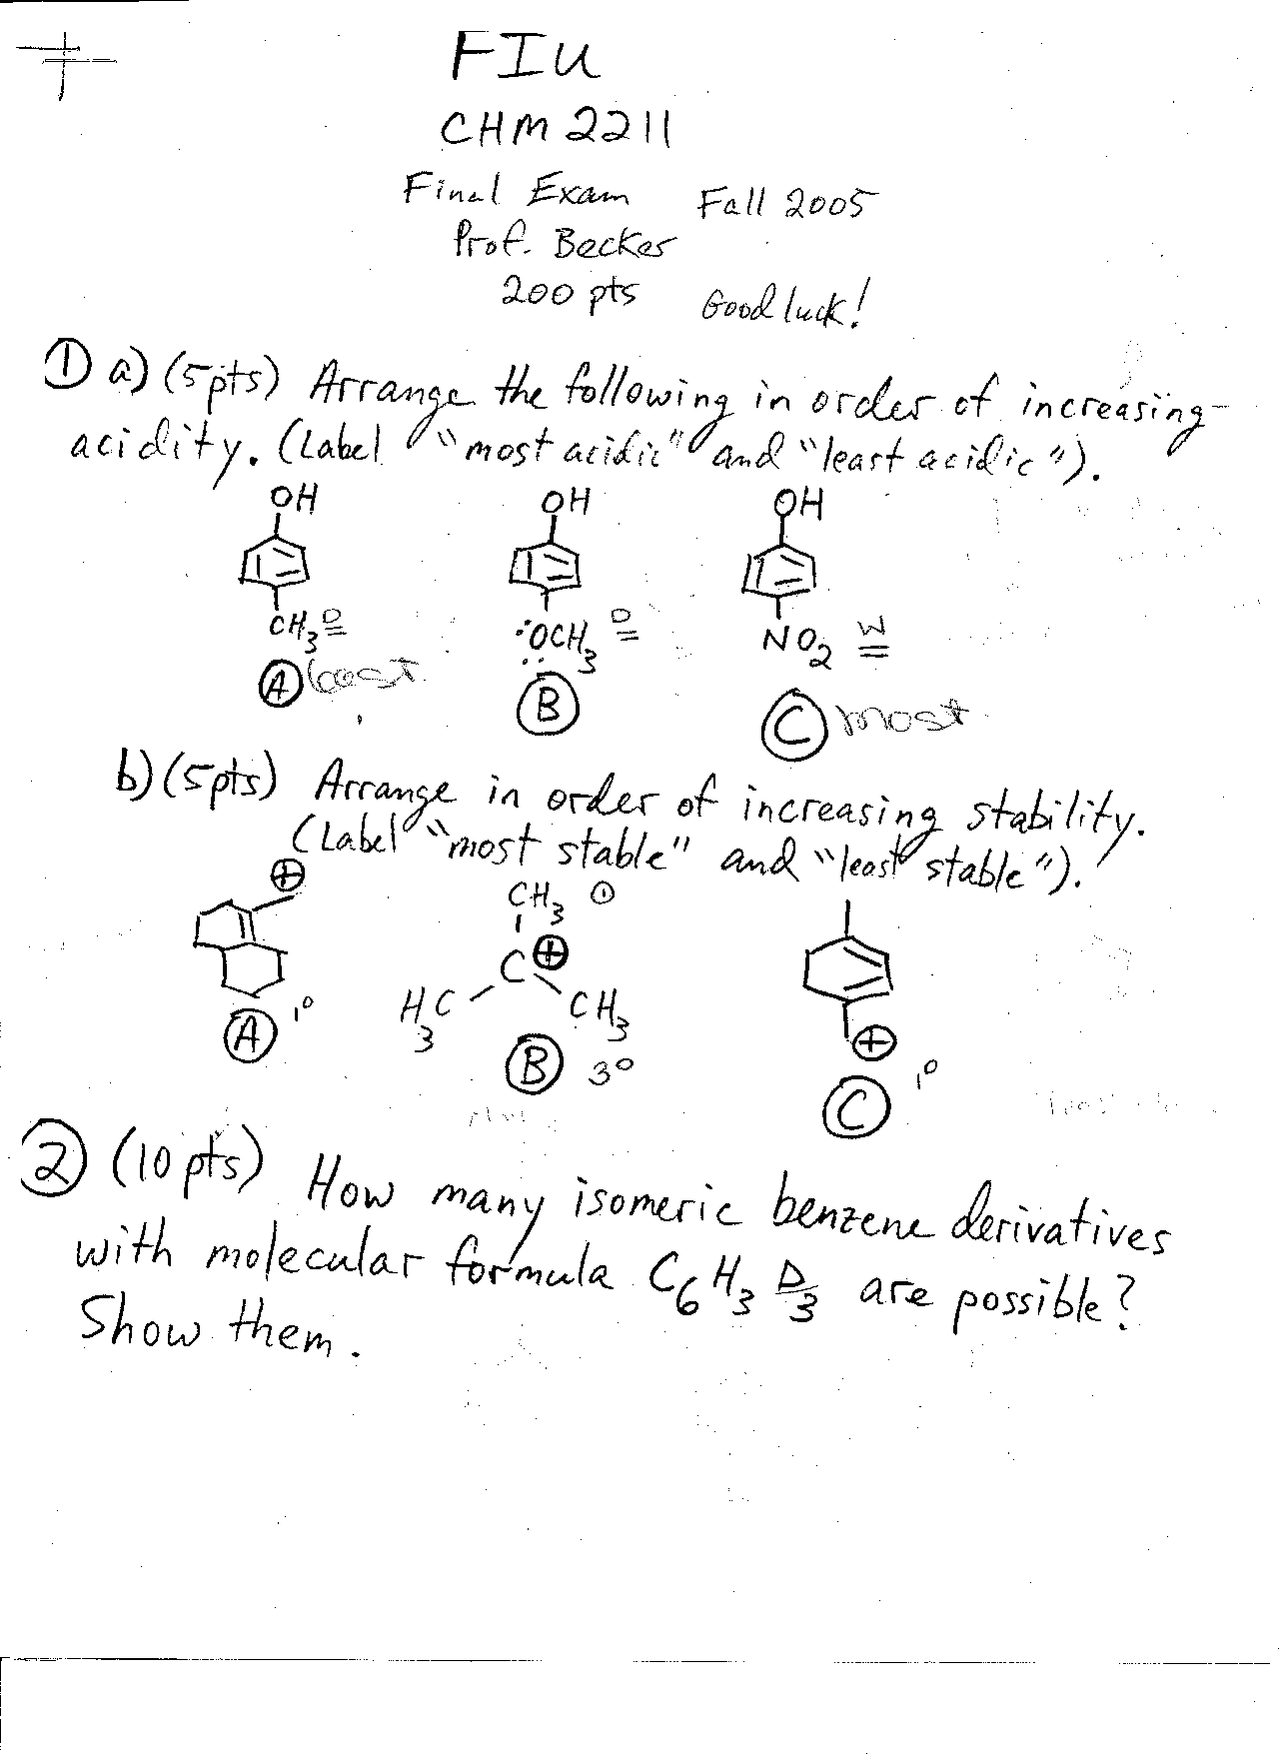 FIU
CHM 2211
Final Exam Fall 2005
Prof. Becker
200 pts Good luck!
① a) (5pts) Arrange the following in order of increasing
acidity. (Label "most acidic" and "least acidic").
OH OH OH
CH₃ D :OCH₃ D NO₂ W
Ⓐ least Ⓑ Ⓒ most
b) (5pts) Arrange in order of increasing stability.
(Label "most stable" and "least stable").
⊕ CH₃ ①
C ⊕
H₃C CH₃ ⊕
Ⓐ 1° Ⓑ 3° Ⓒ 1°
② (10 pts) How many isomeric benzene derivatives
with molecular formula C₆H₃D₃ are possible?
Show them.